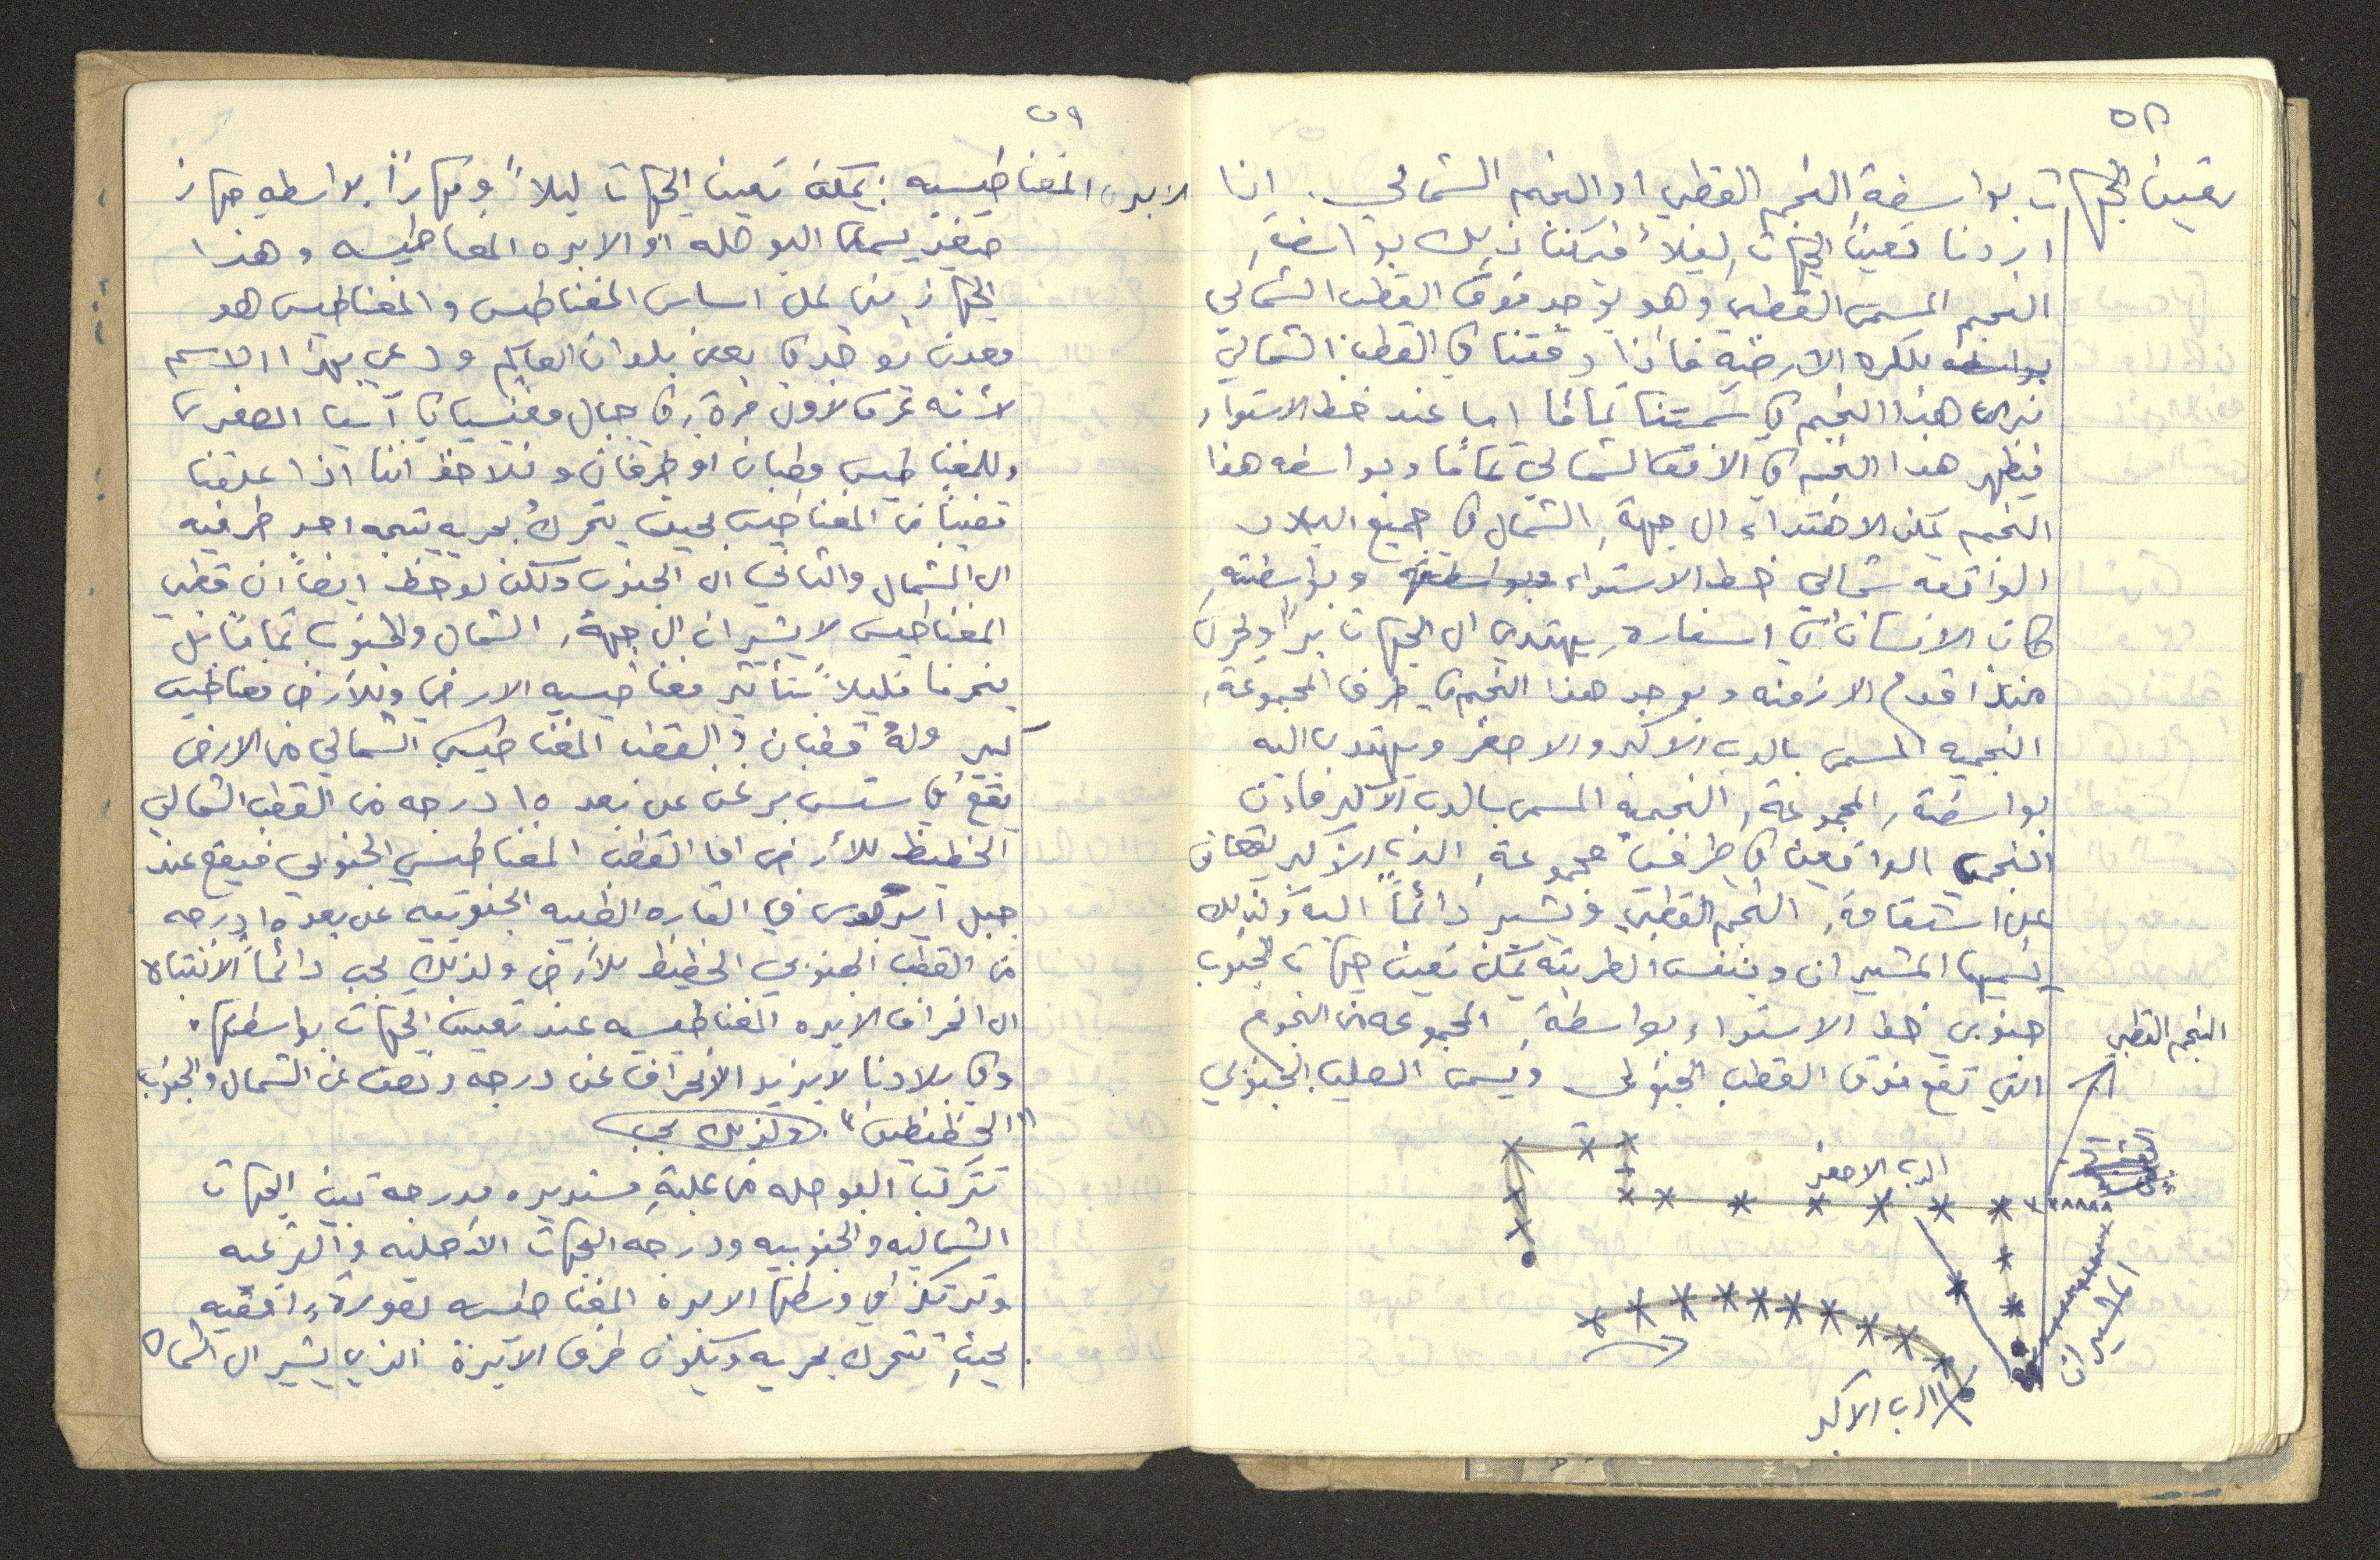 ٥٨
تعيين الجهات بواسطة النجم القطبي او النجم الشمالي. اذا
اردنا تعيين الجهات ليلاً فيمكننا ذلك بواسطة
النجم المسمى القطبي وهو يوجد فوق القطب الشمالي
بواسطه للكره الارضية فاذا وقفنا في القطب الشمالي
نرى هذا النجم في سمتنا تماماً اما عند خط الاستواء
فيظهر هذا النجم في الافق الشمالي تماماً وبواسطه هذا
النجم يمكن الاهتداء الى جهة الشمال في جميع البلاد
الواقعه شمالي خط الاستواء وبواسطته وبواسطته
كان الانسان في اسفاره يهتدي الى الجهات براً وبحراً
منذ اقدم الازمنه ويوجد هذا النجم في طرف المجموعة
النجميه المسمى بالدب الاكبر والاصغر ويهتدى اليه
بواسطة المجموعة النجميه المسمى بالدب الاكبر فان
النجمين الواقعين في طرف مجموعة الدب الاكبر يقعان
على استقامة النجم القطبي ويشير دائماً اليه ولذلك
يسميها المشيران وبنفس الطريقه يمكن تعيين جهات الجنوب
جنوبي خط الاستواء بواسطة المجموعه من النجوم
التي تقع فوق القطب الجنوبي ويسمى الصليب الجنوبي
النجم القطبي
الدب الاصغر
المشيران
الدب الاكبر
٥٩
الابره المغناطيسيه: يمكن تعيين الجهات ليلاً ونهاراً بواسطه جهاز
صغير يسمى البوصله او الابره المغناطيسيه وهذا
الجهاز بني على اساس المغناطيس والمغناطيس هو
معدن يوجد في بعض بلدان العالم ودعي بهذا الاسم
لأنه عرف لاول مرة في جبال مغنيسيا في آسيا الصغرى
وللمغناطيس قطبان او طرفان ونلاحظ اننا اذا علقنا
قضيباً من المغناطيس بحيث يتحرك بحريه يتجه احد طرفيه
الى الشمال والثاني الى الجنوب ولكن لوحظ ايضاً ان قطبي
المغناطيس لا يشيران الى جهة الشمال والجنوب تماماً بل
ينحرفا قليلاً بتأثير مغناطيسيه الارض وللأرض مغناطيس
كبير وله قطبان: القطب المغناطيسي الشمالي من الارض
يقع في ستس برغن على بعد ١٥ درجه من القطب الشمالي
الخطيط للأرض اما القطب المغناطيسي الجنوبي فيقع عند
جبل في القاره القطبيه الجنوبيه على بعد ١٥ درجه
من القطب الجنوبي الخطيط للأرض ولذلك يجب دائماً الانتباه
الى انحراف الابره المغناطيسيه عند تعيين الجهات بواسطتها.
وفي بلادنا لا يزيد الانحراف عن درجه ونصف عن الشمال والجنوب
"الخطيطين". ولذلك يجب
تتركب البوصله من علبة مستديره مدرجة تبين الجهات
الشماليه والجنوبيه ودرجه الجهات الاصليه والفرعيه
وترتكز في وسطها الابرة المغناطيسيه بصورة افقيه
بحيث تتحرك بحريه ويكون طرف الابرة الذي يشير الى الشمال